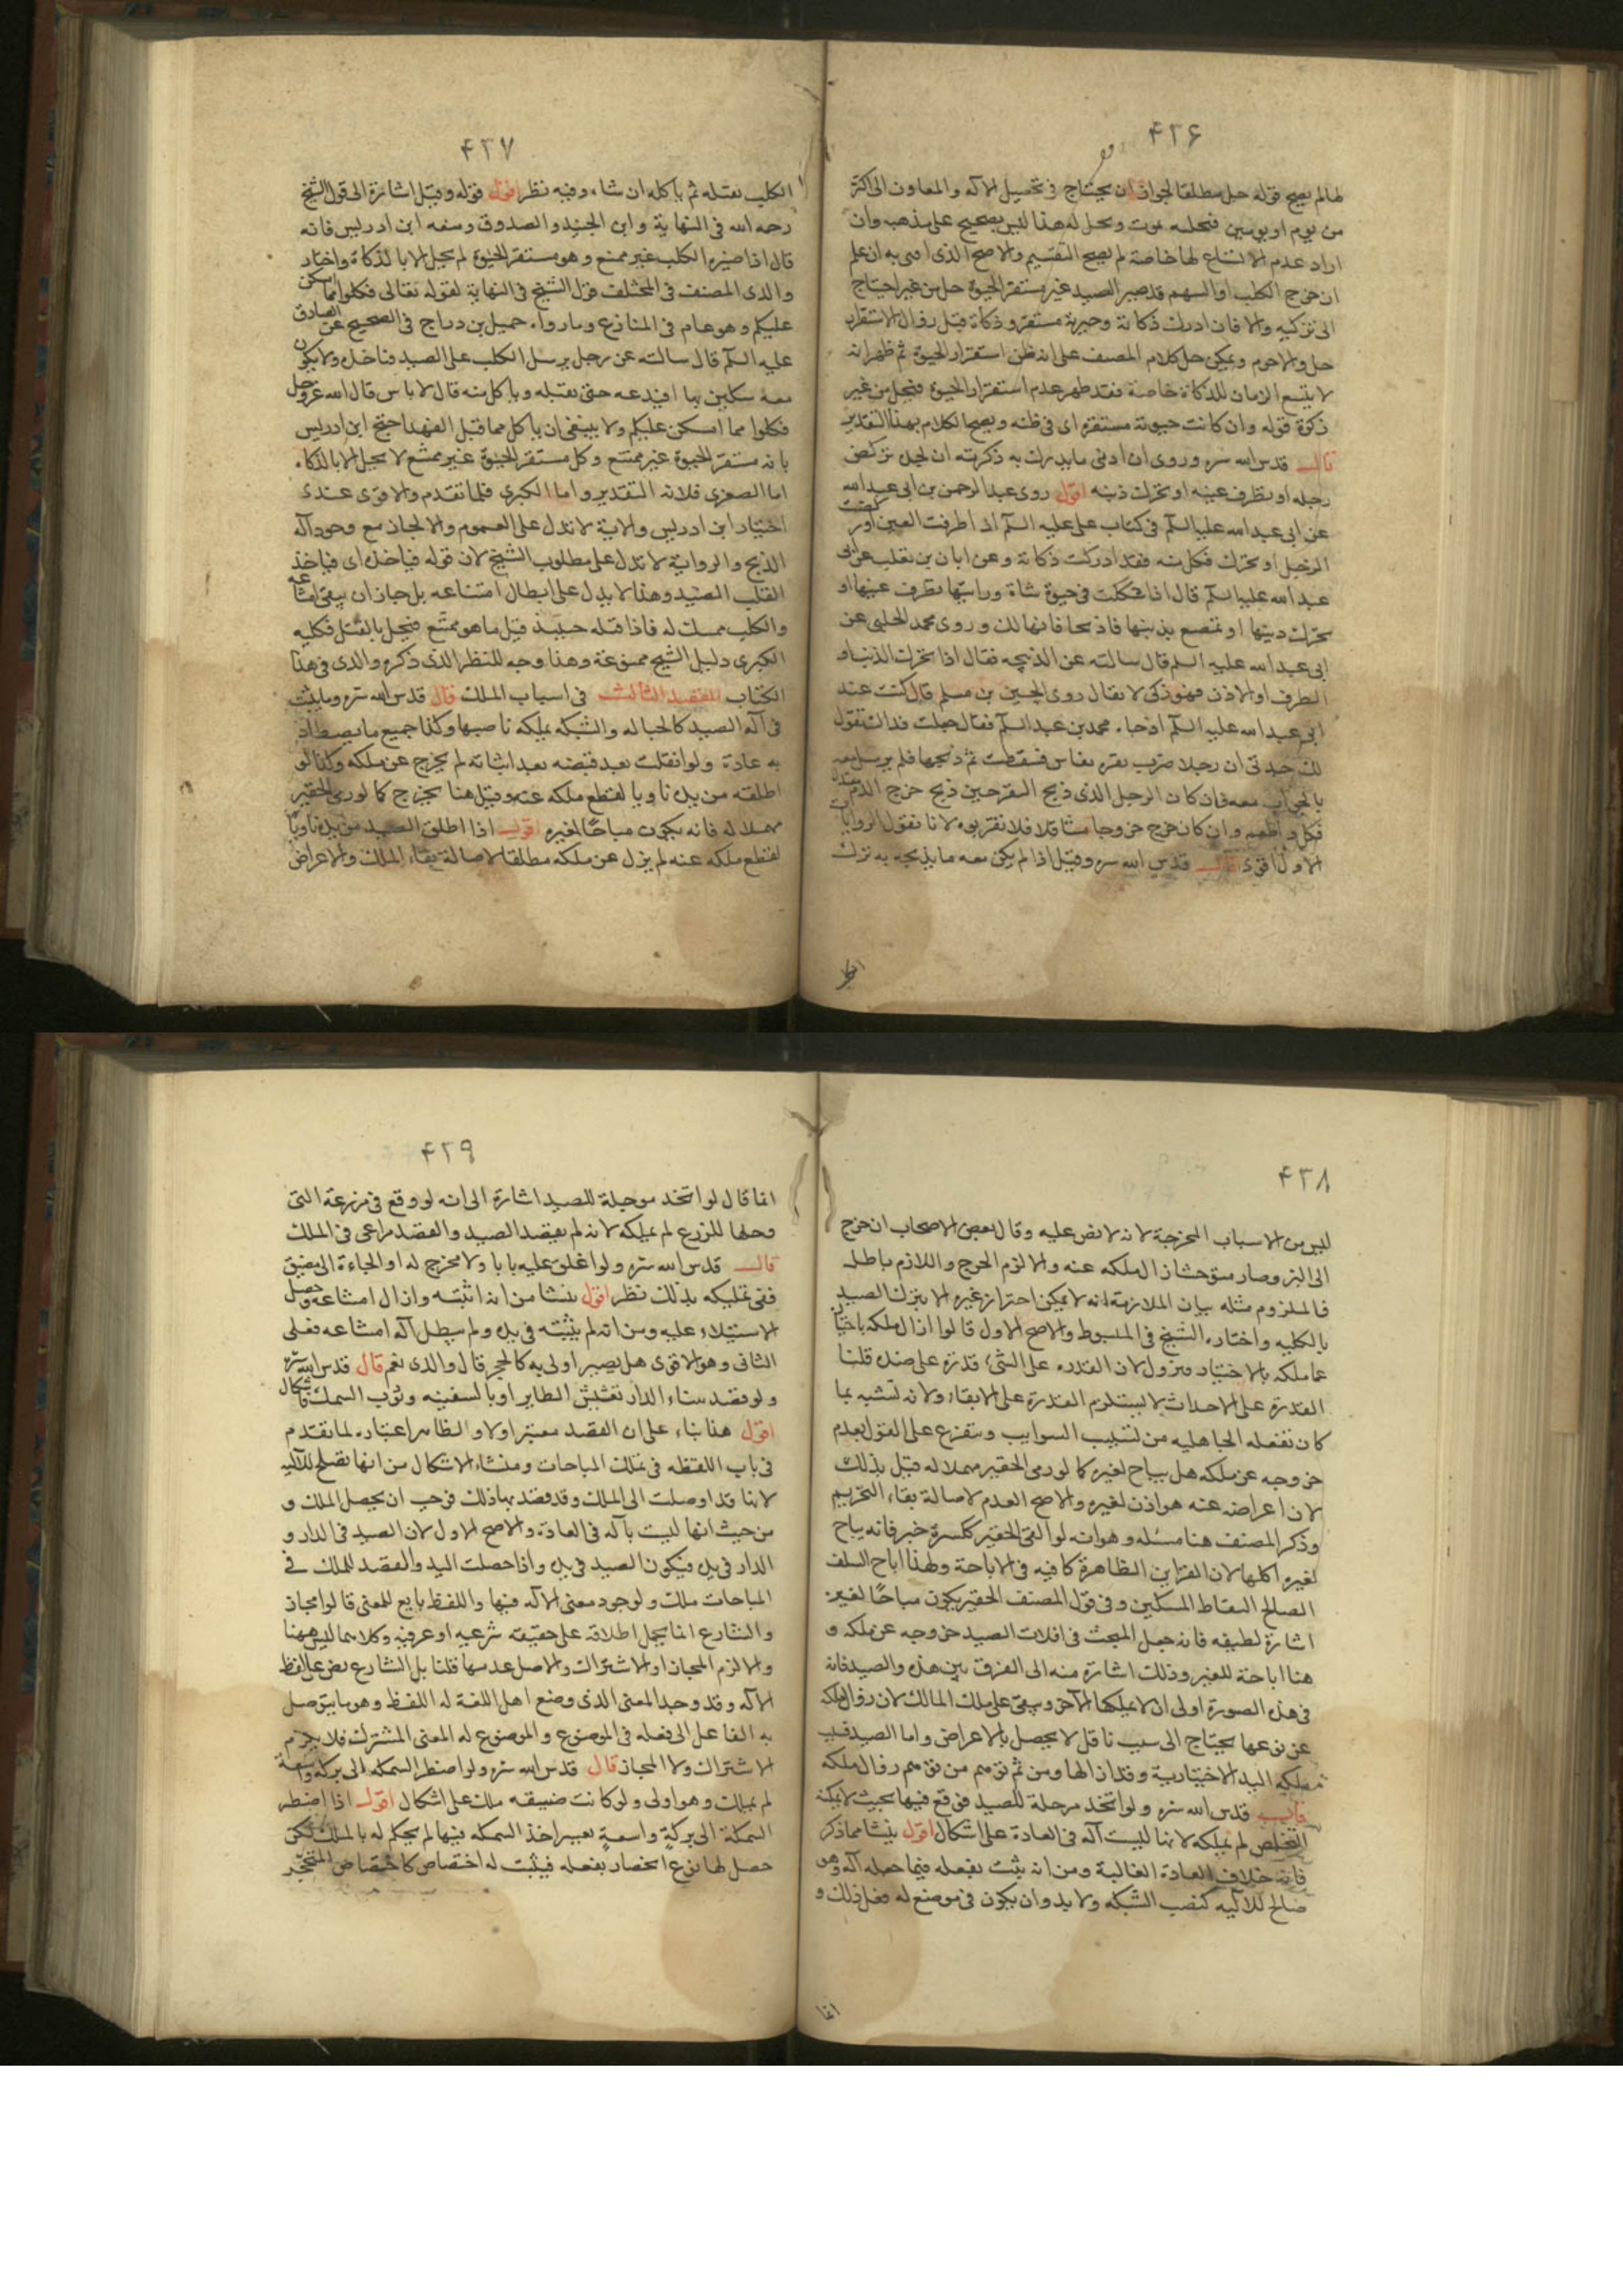 ۴۲۶
لها لم يصح قوله حل مطلقا لجواز ان يحتاج في تحصيل الآلة والمعاون الى اكثر
من يوم او يومين فيحله موت ويحل له هذا ليس بصحيح على مذهب وان
اراد عدم الاتساع لها خاصة لم يصح التقسيم والاصح الذي افتى به ان علم
ان جرح الكلب او السهم قد صير الصيد غير مستقر الحيوة حل من غير احتياج
الى تزكيه والا فان ادرك ذكاته وحيوته مستقرة وذكاة قبل زوال الاستقرار
حل والا حرم ويمكن حل كلام المصنف على انه ظن استقرار الحيوة ثم ظهر انه
لا يتسع الزمان للذكاة خاصة فقد ظهر عدم استقرار الحيوة فيحل من غير
ذكوة قوله وان كانت حيوته مستقرة اى في ظنه ويصح الكلام بهذا التقدير
قال قدس الله سره وروى ان ادنى ما يدرك به ذكوته ان يجده تركض
رجله او يطرف عينه او يتحرك ذنبه اقول روى عبد الرحمن بن ابى عبد الله
عن ابى عبد الله عليه السلم في كتاب على عليه السلم اذا طرفت العين او ركضت
الرجل او تحرك فكل منه فقد ادركت ذكاته وعن ابان بن تغلب عن ابى
عبد الله عليه السلم قال اذا شككت في حيوة شاة ورايتها تطرف عينها او
تحرك ذنبها او تمصع بذنبها فاذبحها فانها لك وروى محمد الحلبى عن
ابى عبد الله عليه السلم قال سالته عن الذبيحه فقال اذا تحرك الذنب او
الطرف او الاذن فهو ذكى لا يقال روى الحسين بن مسلم قال كنت عند
ابى عبد الله عليه السلم اذ جاء محمد بن عبد السلم فقال جعلت فداك تقول
لك جدتى ان رجلا ضرب بقره بفاس فسقطت ثم ذبحها فلم يرسل معه
بالجواب معه فان كان الرجل الذى ذبح البقر حين ذبح خرج الدم معتدلا
فكل واطعم وان كان خرج خروجا متثاقلا فلا تقربوه لانا نقول الروايات
الاول اقوى قال قدس الله سره وقيل اذا لم يكن معه ما يذبحه به ترك
۴۲۷
الكلب يقتله ثم ياكله ان شاء وفيه نظر اقول قوله وقيل اشارة الى قول الشيخ
رحمه الله في النهاية وابن الجنيد والصدوق ومنعه ابن ادريس فانه
قال اذا صيره الكلب غير ممتنع وهو مستقر الحيوة لم يحل الا بالذكاة واختاره
والدى المصنف في المختلف قول الشيخ في النهاية لقوله تعالى فكلوا مما امسكن
عليكم وهو عام في المنازع وما رواه جميل بن دراج في الصحيح عن الصادق
عليه السلم قال سالته عن رجل يرسل الكلب على الصيد فياخذه ولا يكون
معه سكين بها افيدعه حتى يقتله وياكل منه قال لا باس قال الله عز وجل
فكلوا مما امسكن عليكم ولا ينبغى ان ياكل مما قبل الفهد احتج ابن ادريس
بانه مستقر الحيوة غير ممتنع وكل مستقر الحيوة غير ممتنع لا يحل الا بالذكاه
اما الصغرى فلانه التقدير واما الكبرى فلما تقدم والاقوى عندى
اختيار ابن ادريس والاية لا تدل على العموم والا لجاز مع وجود آلة
الذبح والرواية لا تدل على مطلوب الشيخ لان قوله فياخذه اى فياخذ
القلب الصيد وهذا لا يدل على ابطال امتناعه بل جاز ان يبقى امتناعه
والكلب ممسك له فاذا قتله حينئذ قتل ما هو ممتنع فيحل بالقتل فكليه
الكبرى دليل الشيخ ممنوعة وهذا وجه للنظر الذى ذكره والدى في هذا
الكتاب المقصد الثالث في اسباب الملك قال قدس الله سره وما يثبت
في آلة الصيد كالحباله والشبكه يملكه ناصبها وكذا جميع ما يصطاد
به عادة ولو انفلت بعد قبضه بعد اثباته لم يخرج عن ملكه وكذا لو
اطلقه من يده ناويا لقطع ملكه عنه وقيل هنا يخرج كما لو رمى الحقير
مهملا له فانه يكون مباحا لغيره اقول اذا اطلق الصيد من يده ناويا
لقطع ملكه عنه لم يزل عن ملكه مطلقا لاصالة بقاء الملك والاعراض
۴۲۸
ليس من الاسباب المخرجة لانه لا نص عليه وقال بعض الاصحاب ان خرج
الى البر وصار متوحشا زال ملكه عنه والا لزم الحرج واللازم باطل
فالملزوم مثله بيان الملازمة انه لا يمكن احتراز غيره الا بترك الصيد
بالكليه واختاره الشيخ في المبسوط والاصح الاول قالوا ازال ملكه باختياره
عما ملكه بالاختيار فيزول لان القدره على الشئ قدرة على ضده قلنا
القدرة على الاحداث لا يستلزم القدرة على الابقاء ولانه تشبه بما
كان تفعله الجاهليه من تسبيب السوايب ويتفرع على القول بعدم
خروجه عن ملكه هل يباح لغيره كما لو رمى الحقير مهملا له قيل بذلك
لان اعراضه عنه هو اذن لغيره والاصح العدم لاصالة بقاء التحريم
وذكر المصنف هنا مسئله وهو انه لو القى الحقير ككسرة خبز فانه يباح
لغيره اكلها لان القراين الظاهرة كافيه في الاباحة ولهذا اباح السلف
الصالح التقاط المسكين وفي قول المصنف الحقير يكون مباحا لغيره
اشارة لطيفه فانه جعل المبحث في افلات الصيد خروجه عن ملكه و
هنا اباحة للغير وذلك اشارة منه الى الفرق بين هذه والصيد فانه
في هذه الصورة اولى ان لا يملكها الآخر ويبقى على ملك المالك لان زوال ملكه
عن نوعها يحتاج الى سبب ناقل لا يحصل بالاعراض واما الصيد فسبب
مملكه اليد الاختيارية وقد ازالها ومن ثم توهم من توهم زوال ملكه
قال قدس الله سره ولو اتخذ موحلة للصيد فوقع فيها بحيث لا يمكنه
التخلص لم يملكه لانها ليست آلة في العادة على اشكال اقول ينشا مما ذكر
فانه خلاف العادة الغالبة ومن انه يثبت بفعله فيما جعله آلة وهو
صالح للاليه كنصب الشبكه ولا بد وان يكون في موضع له فعل ذلك و
انما
۴۲۹
انما قال لو اتخذ موحلة للصيد اشارة الى انه لو وقع في مزرعة التى
وحلها للزرع لم يملكه لانه لم يقصد الصيد والقصد مراعى في الملك
قال قدس الله سره ولو اغلق عليه بابا ولا مخرج له او الجاءه الى مضيق
ففى تملكيه بذلك نظر اقول ينشا من انه اثبته وازال امتناعه وحصل
الاستيلاء عليه ومن انه لم يثبته في يده ولم يبطل آلة امتناعه فعلى
الثانى وهو الاقوى هل يصير اولى به كالمحجر قال والدى نعم قال قدس الله سره
ولو قصد ببناء الدار تعشيش الطاير او بالسفينه وثوب السمك فاشكال
اقول هذا بناء على ان القصد معتبر اولا والظاهر اعتباره لما تقدم
في باب اللقطه في تملك المباحات ومنشاء الاشكال من انها تصلح للآليه
لانها قد اوصلت الى الملك وقد قصد بها ذلك فوجب ان يحصل الملك و
من حيث انها ليست بآلة في العادة والاصح الاول لان الصيد في الدار و
الدار في يده فيكون الصيد في يده واذا حصلت اليد والقصد للملك في
المباحات ملك ولوجود معنى الآلة فيها واللفظ تابع للمعنى قالوا مجاز
والشارع انما يحمل اطلاقه على حقيقته شرعيه او عرفيه وكلاهما ليس ههنا
والا لزم المجاز او الاشتراك والاصل عدمها قلنا بل الشارع نص على لفظ
الآله وقد وجد المعنى الذى وضع اهل اللغة له اللفظ وهو ما يتوصل
به الفاعل الى فعله في الموضوع والموضوع له المعنى المشترك فلا يلزم
الاشتراك ولا المجاز قال قدس الله سره ولو اضطر السمكه الى بركه واسعة
لم يملك وهو اولى ولو كانت ضيقه ملك على اشكال اقول اذا اضطر
السمكة الى بركة واسعة يعسر اخذ السمكه فيها لم يحكم له بالملك لكن
حصل لها نوع انحصار بفعله فيثبت له اختصاص كاختصاص المتحجر